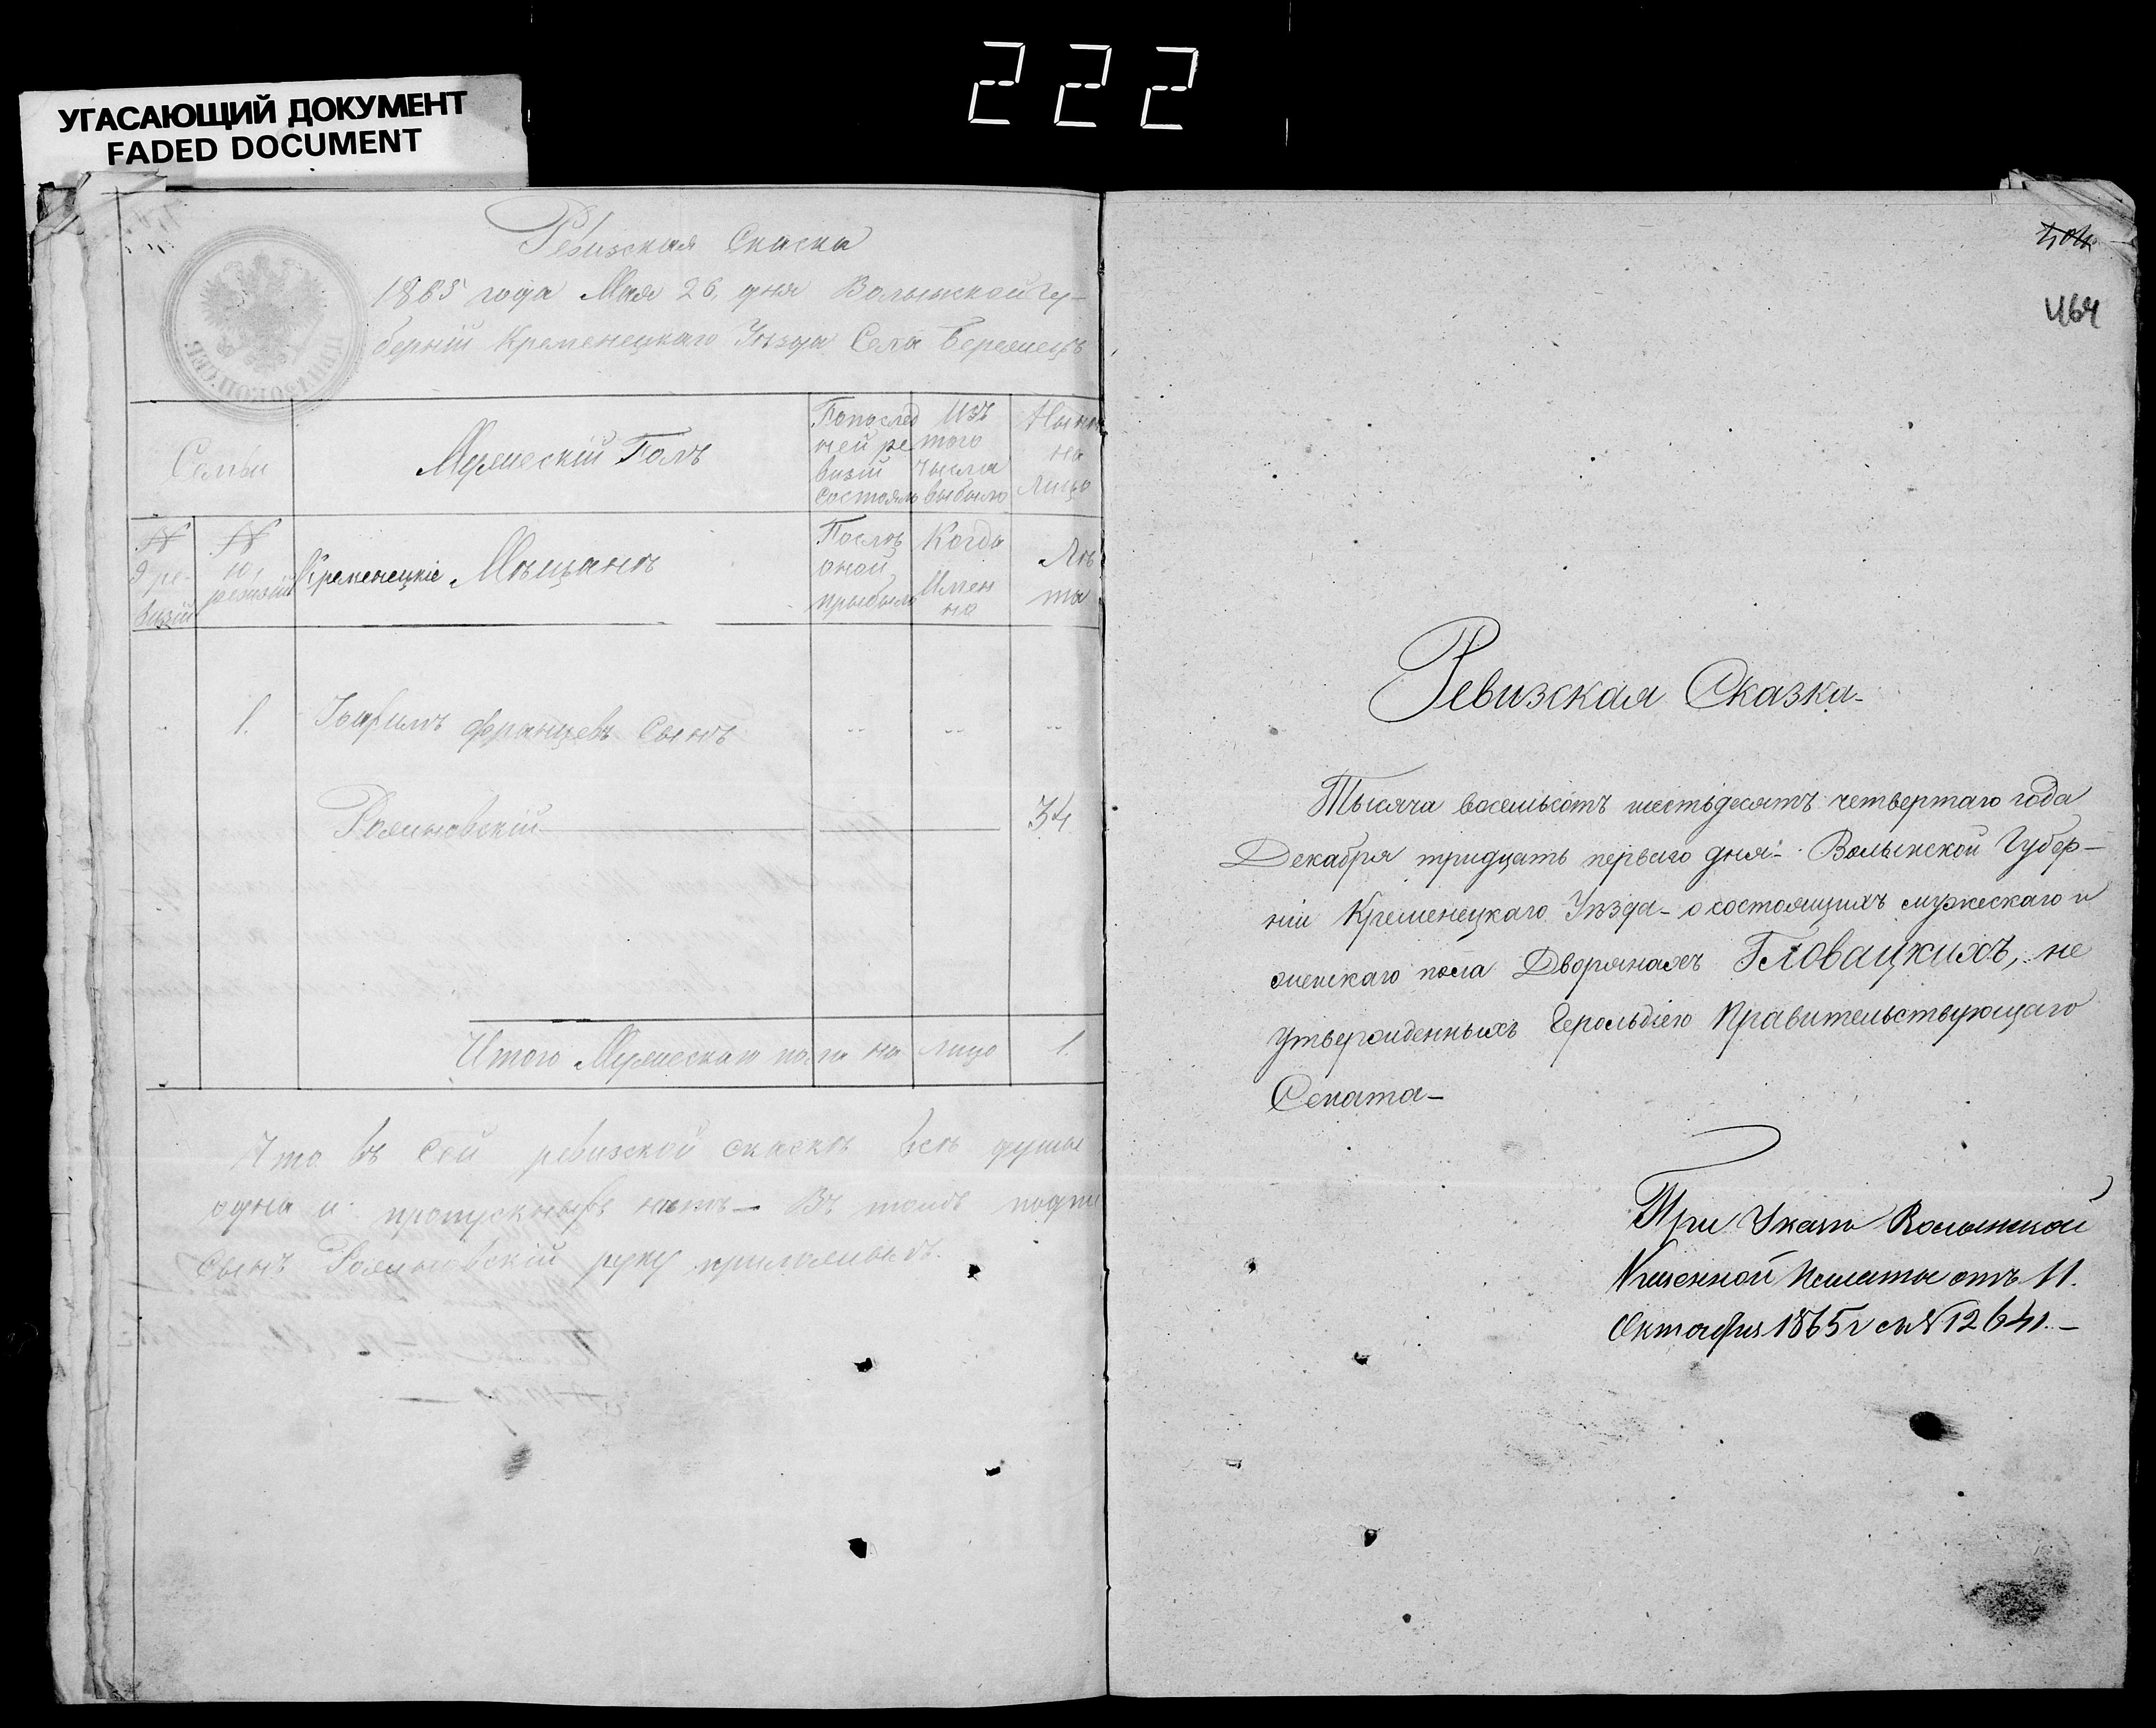 222
УГАСАЮЩИЙ ДОКУМЕНТ
FADED DOCUMENT
Ревизская Скаска
1865 года Мая 26, дня Волынской Гу-
берніи Кременецкаго Уѣзда Села Бережецъ
Семьи
Мужескій Полъ
Попослед
ней ре
визіи
состояло
Изъ
того
числа
выбыло
Нынѣ
на
лицо
№
9 ре-
визіи
№
ревизіи
Кременецкіе Мѣщанъ
Послѣ
оной
прыбыло
Когда
Имен
но
Лѣ
та
1. Францевъ Сынъ
34
Итого Мужескаго пола на лицо 1.
Что въ сей ревизской скаскѣ всѣ душы
одна и пропускныхъ нѣтъ — Въ томъ подпи
Сынъ руку
404
464
Ревизская Сказка-
Тысяча восемьсотъ шестьдесятъ четвертаго года
Декабря тридцать перваго дня - Волынской Губер-
ніи Кременецкаго Уѣзда - о состоящихъ мужескаго и
женскаго пола Дворянахъ Гловацкихъ, не
утвержденныхъ Герольдіею Правительствующаго
Сената-
При Указѣ Волынской
Казенной Палаты отъ 11.
Октября 1865 г за № 12641.-